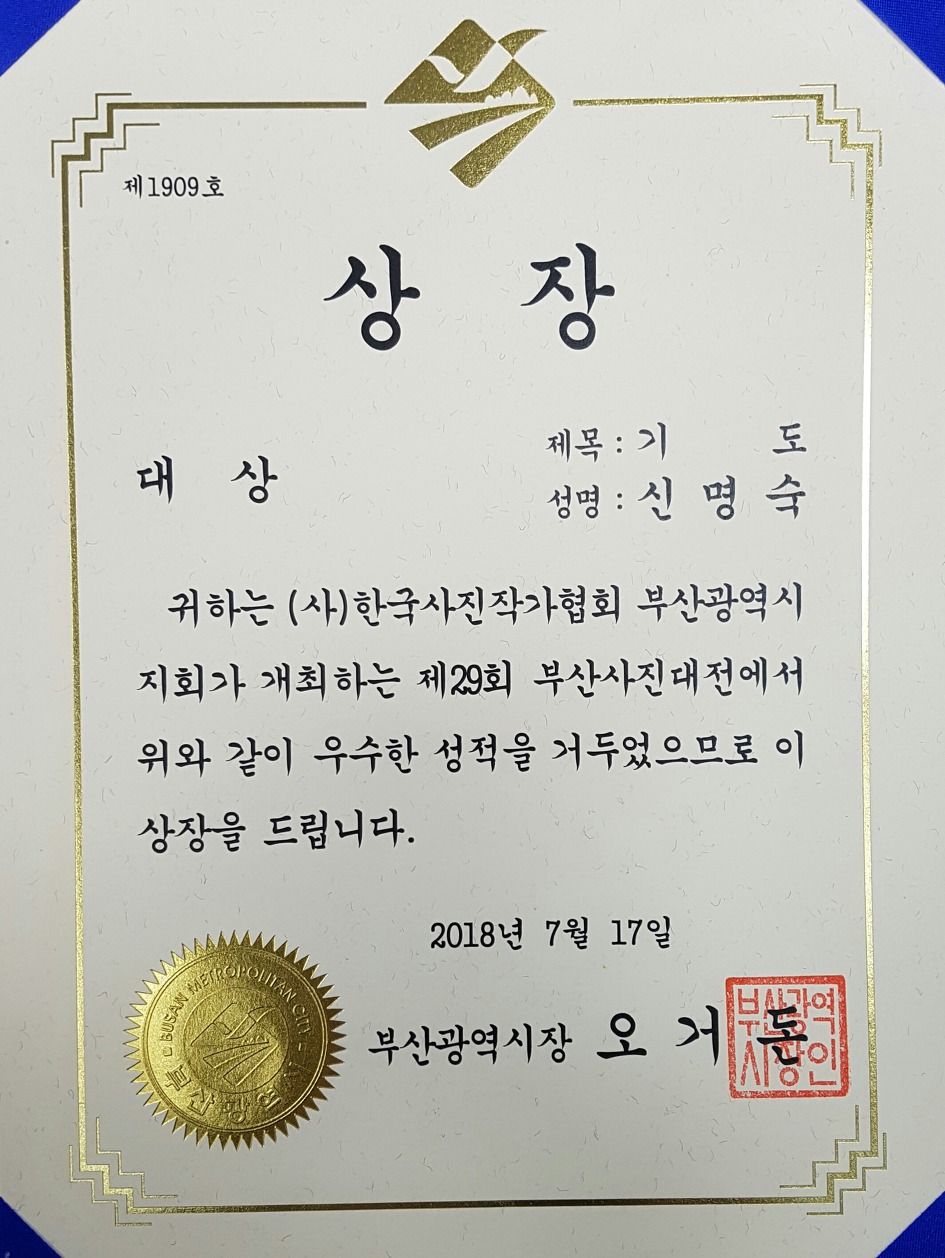 제1909호
상 장
대 상
제목 : 기 도
성명 : 신 명 숙
귀하는 (사)한국사진작가협회 부산광역시
지회가 개최하는 제29회 부산사진대전에서
위와 같이 우수한 성적을 거두었으므로 이
상장을 드립니다.
2018년 7월 17일
부산광역시장 오 거 돈
부산광역
시장인
BUSAN METROPOLITAN CITY
부산광역시